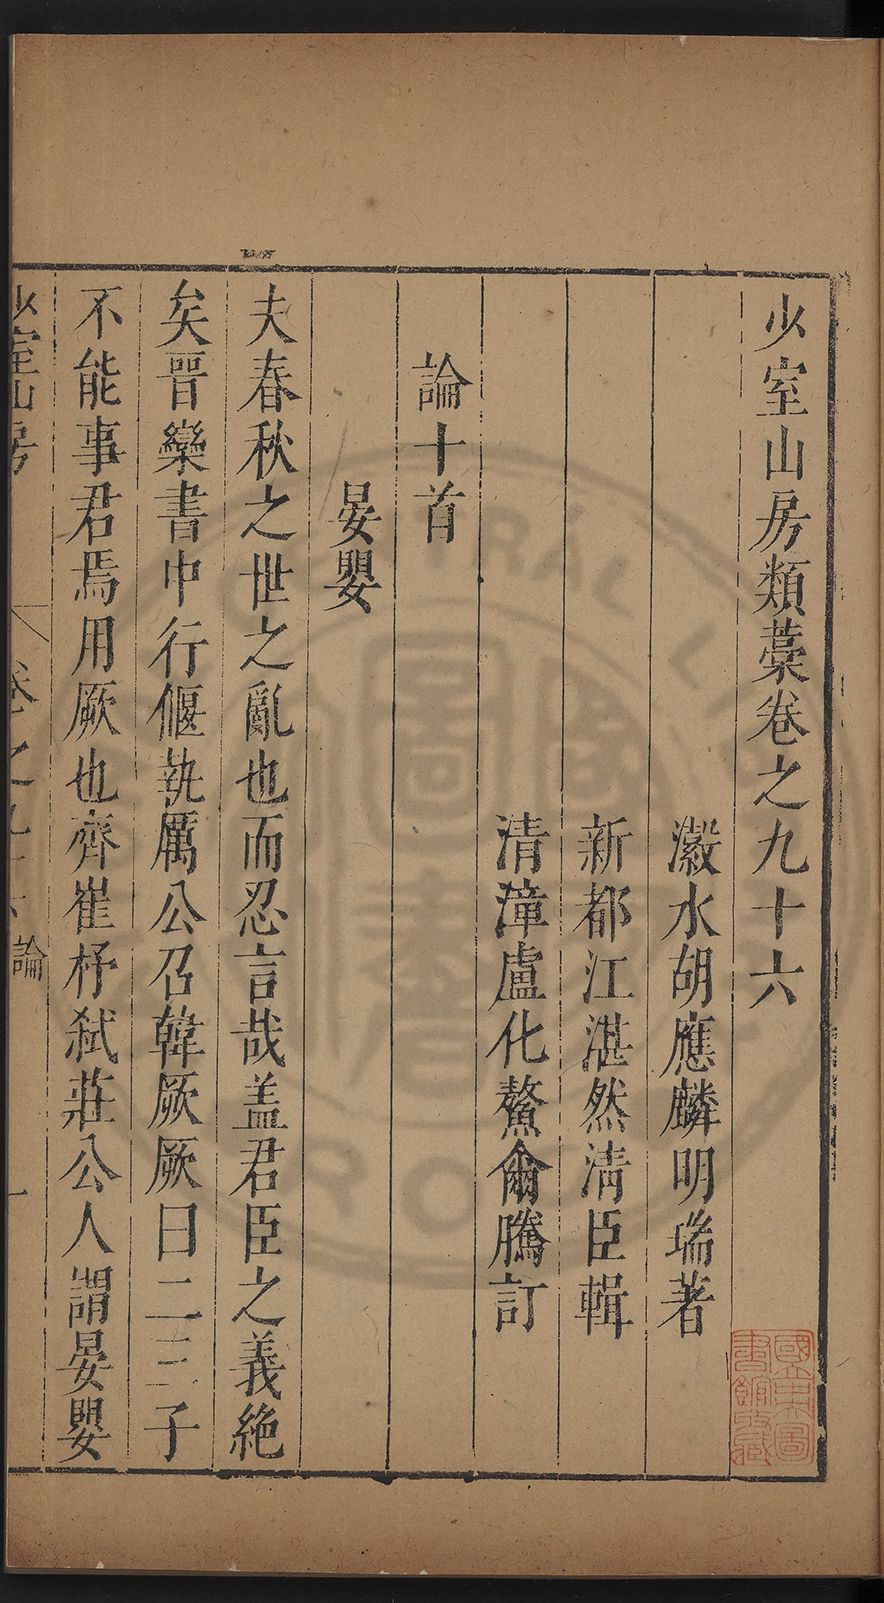 少室山房類藁卷之九十六
瀫水胡應麟明瑞著
新都江湛然清臣輯
清漳盧化鰲爾騰訂
論十首
晏嬰
夫春秋之世之亂也而忍言哉盖君臣之義絶
矣晉欒書中行偃執厲公召韓厥厥曰二三子
不能事君焉用厥也齊崔杼弑莊公人謂晏嬰
少室山房
卷之九十六
論
一